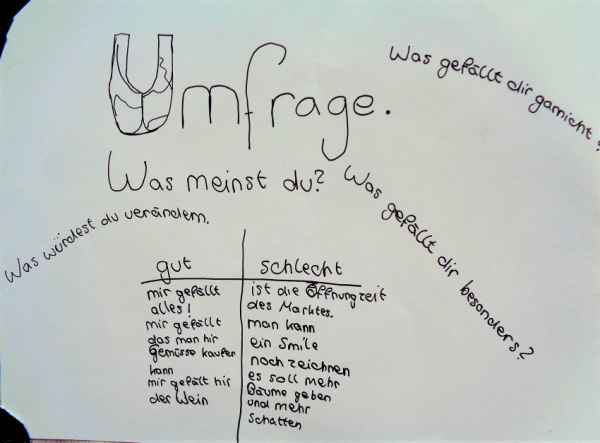 Umfrage.
Was meinst du?
Was gefällt dir garnicht?
Was gefällt dir besonders?
Was würdest du verändern.
gut
mir gefällt
alles!
mir gefällt
das man hir
Gemüsse kaufen
kann
mir gefält hir
der Wein
schlecht
ist die Öffnungzeit
des Marktes.
man kann
ein Smile
noch zeichnen
es soll mehr
Bäume geben
und mehr
Schatten